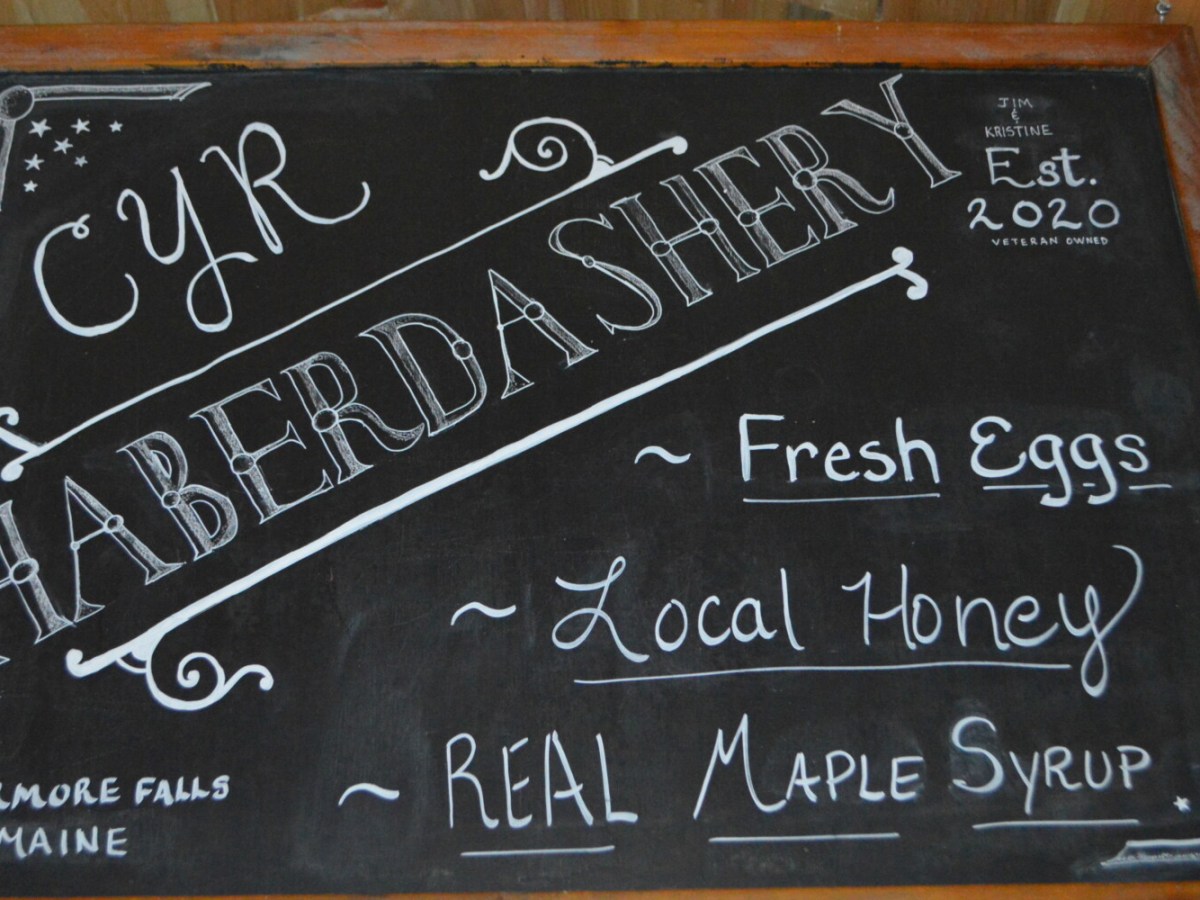 CYR
HABERDASHERY
JIM
&
KRISTINE
Est.
2020
VETERAN OWNED
~ Fresh Eggs
~ Local Honey
~ REAL MAPLE SYRUP
RMORE FALLS
MAINE